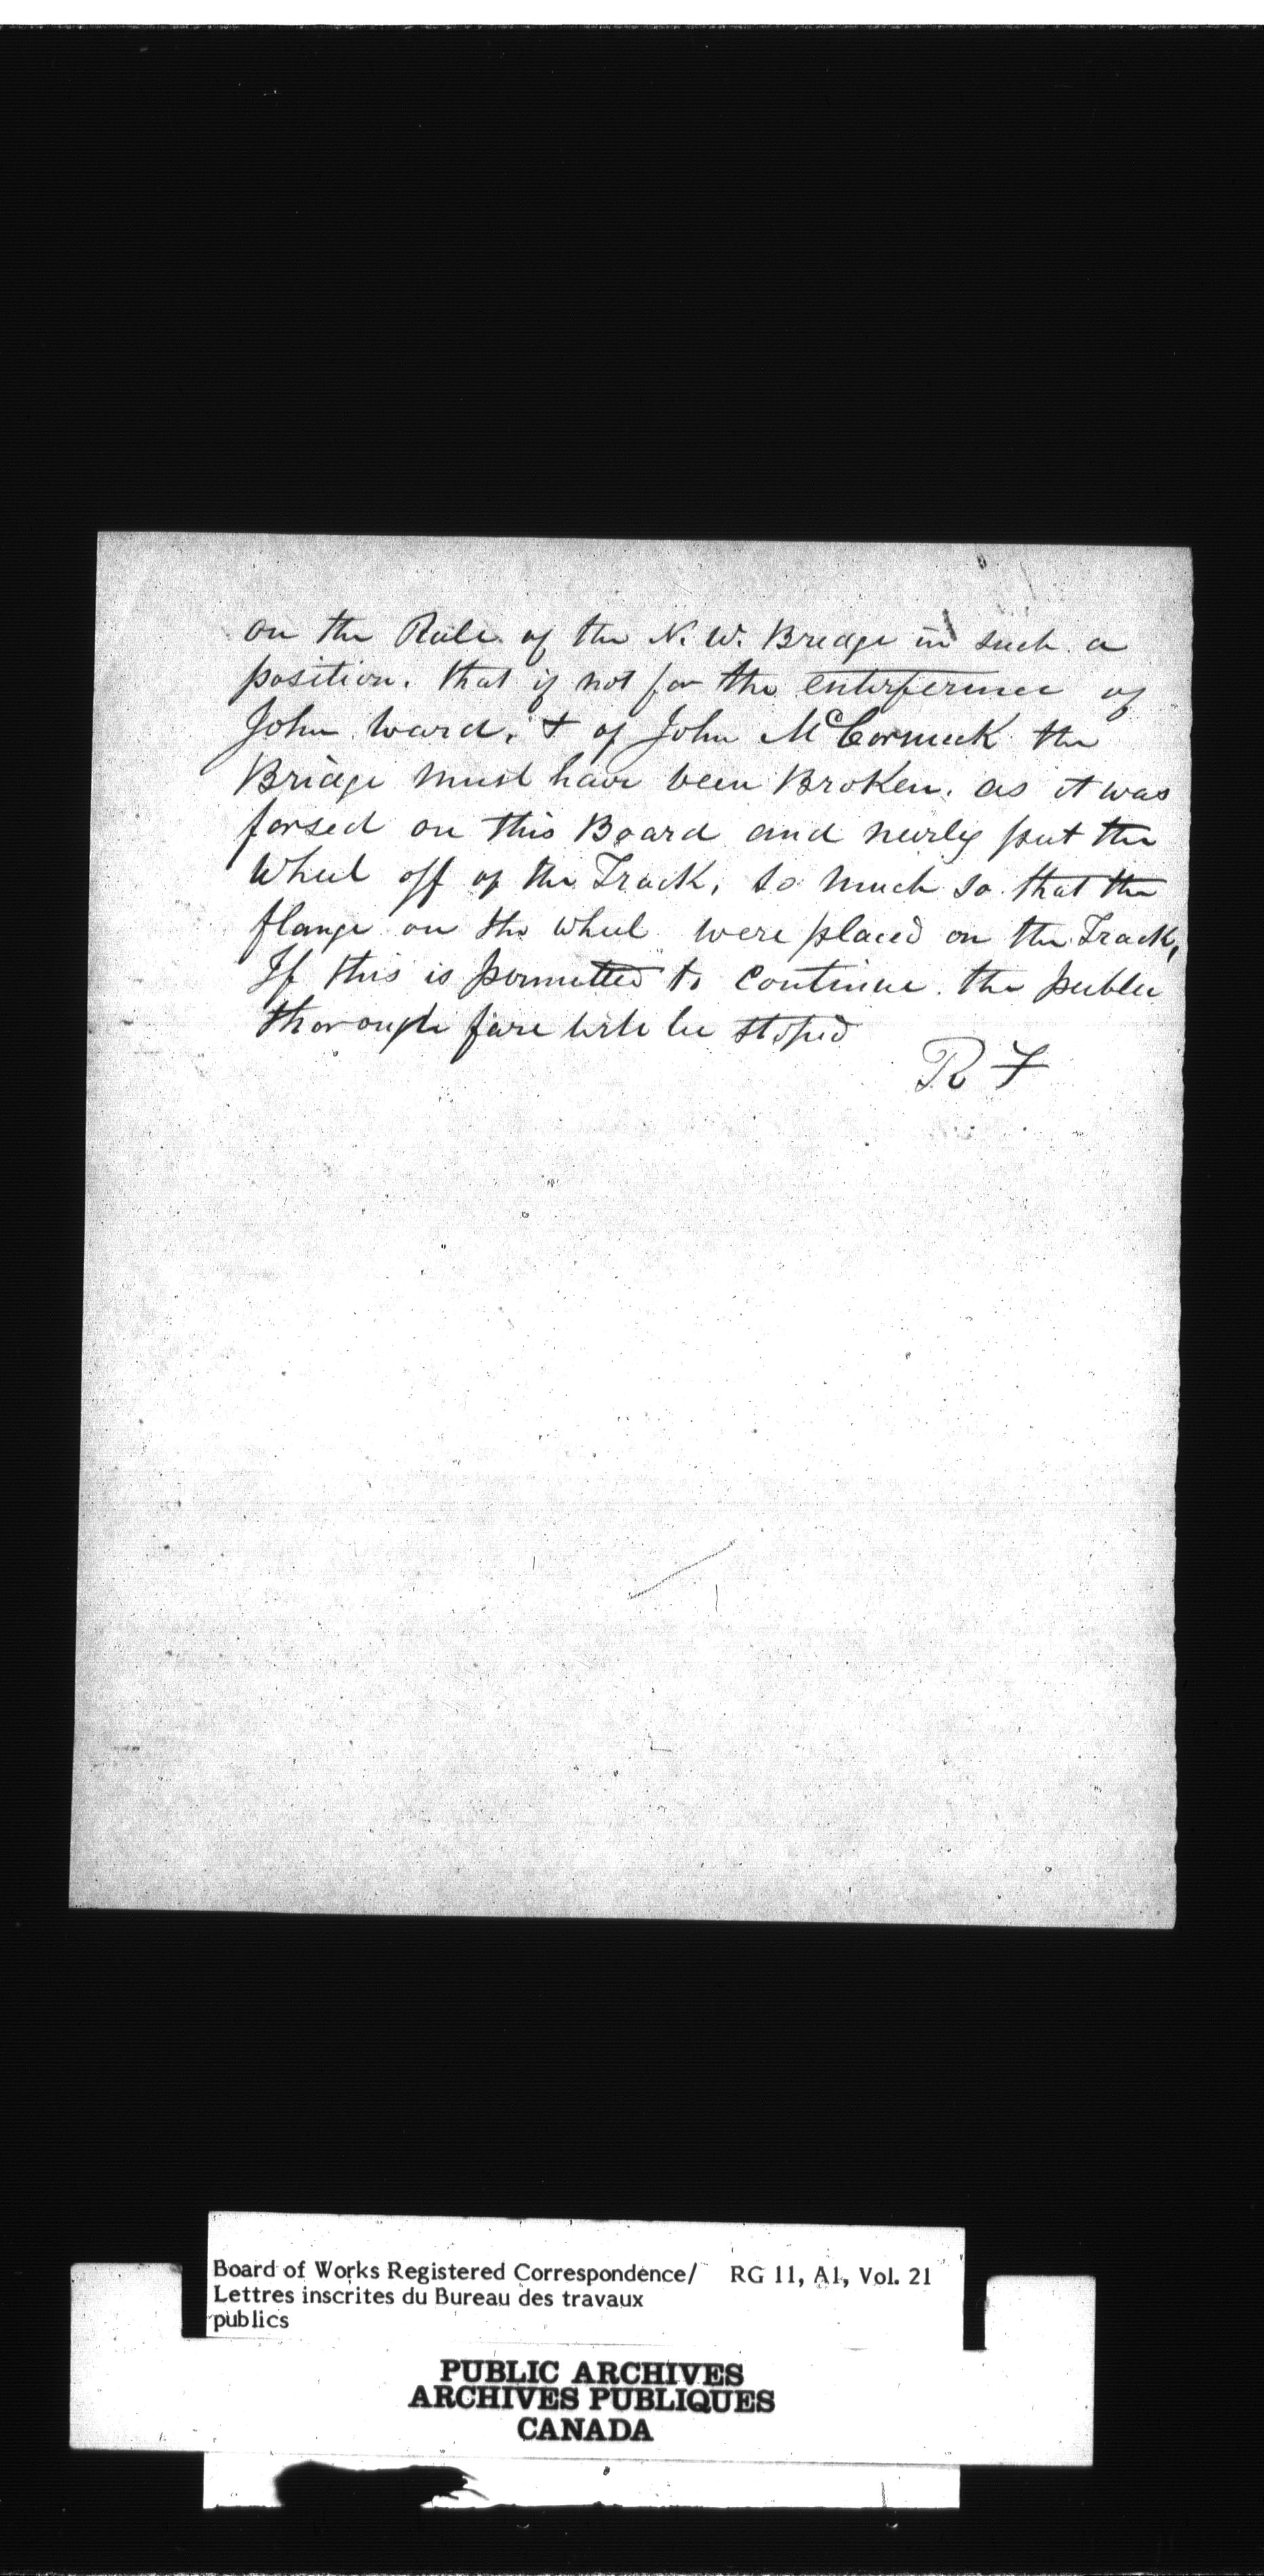 on the Raile of the N. W. Bridge in such a
position. that if not for the enterference of
John Ward. & of John McCormick the
Bridge must have been Broken. as it was
forsed on this Board and nearly put the
Wheel off of the Track, so much so that the
flange on the wheel were placed on the Track,
If this is permitted to Continue. the public
thorough fare will be stoped
R F
Board of Works Registered Correspondence/ RG 11, A1, Vol. 21
Lettres inscrites du Bureau des travaux
publics
PUBLIC ARCHIVES
ARCHIVES PUBLIQUES
CANADA